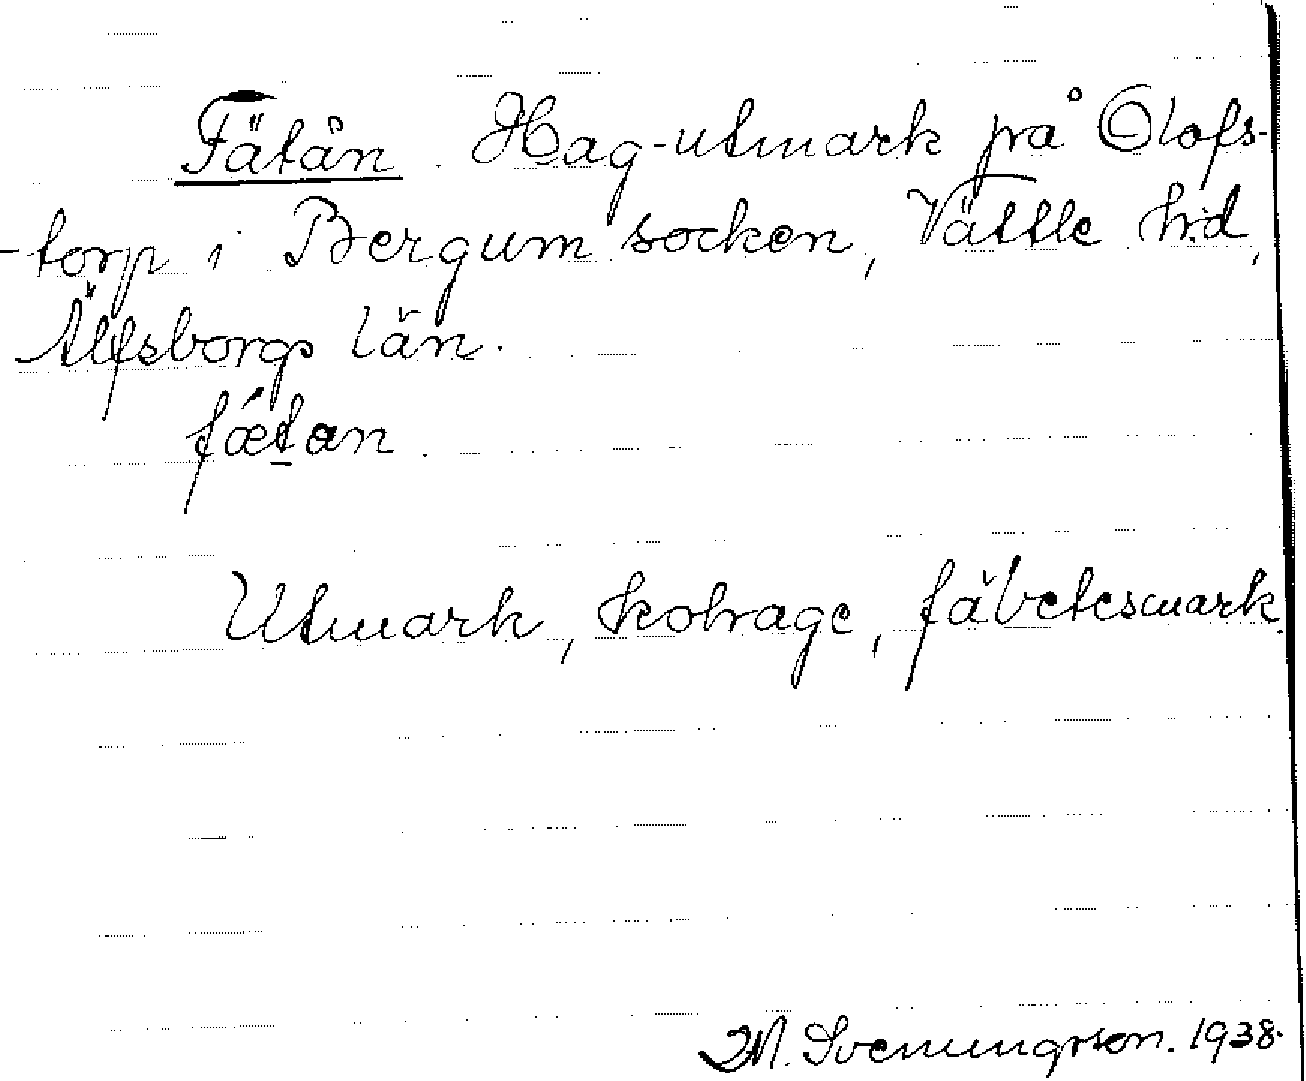 Fätån. Hag-utmark på Olofs-
-torp i Bergum socken, Vättle hd,
Älfsborgs län.
fǽtan.
Utmark, kohage, fäbetesmark.
M. Svenungsson. 1938.